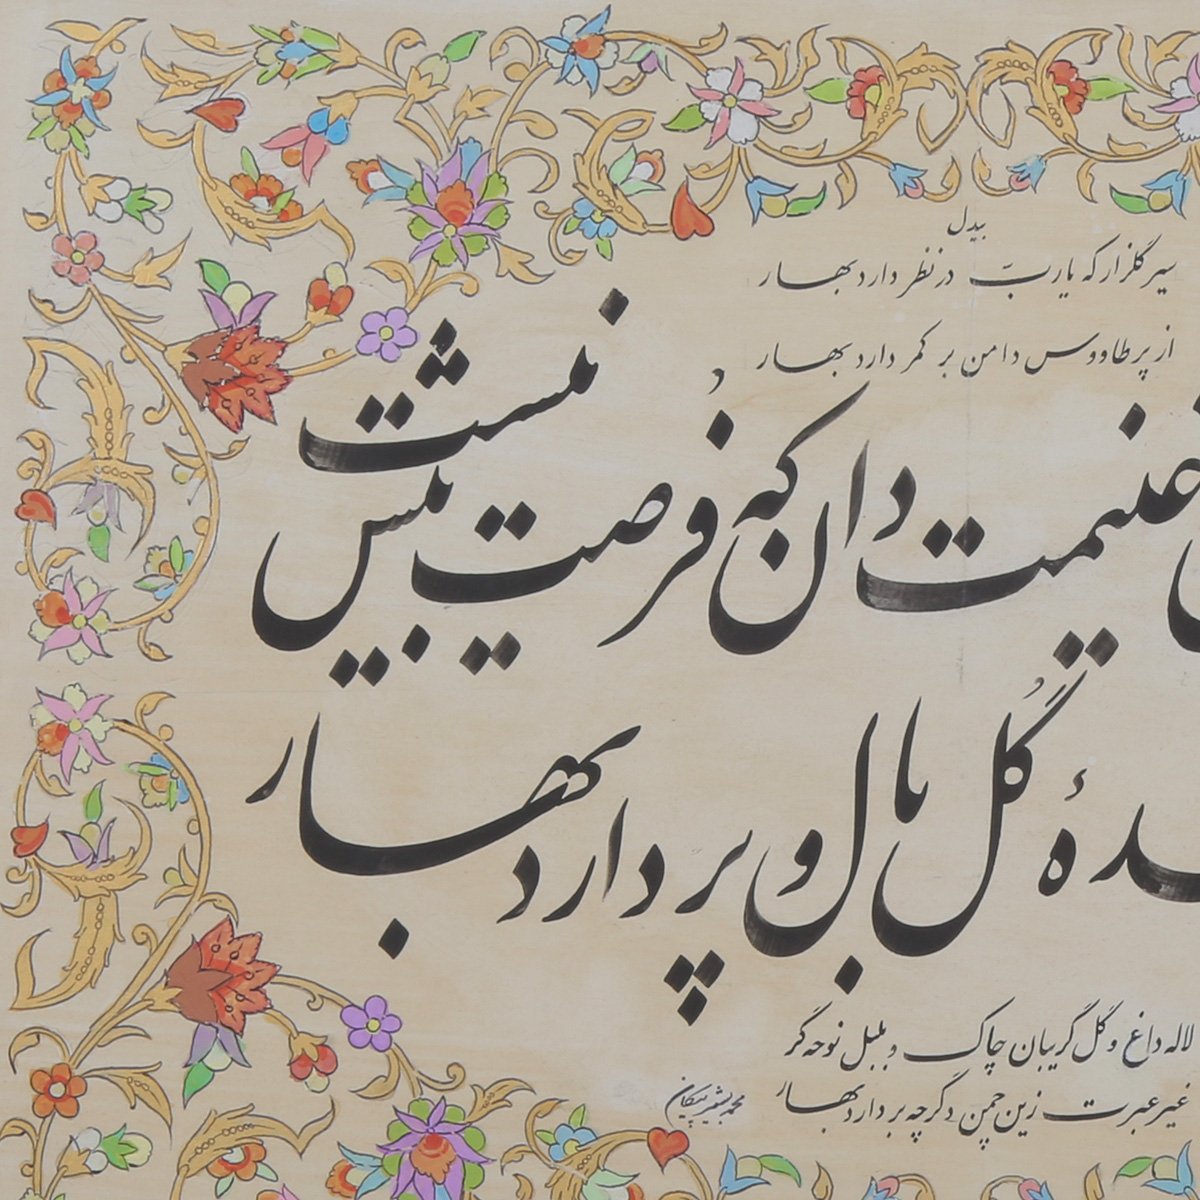 بیدل
سیر گلزار که یارب در نظر دارد بهار
از پر طاووس دامن بر کمر دارد بهار
غنیمت دان که فرصت بیش نیست
ده گل بال و پر دارد بهار
لاله داغ و گل گریبان چاک و بلبل نوحه گر
غیر عبرت زین چمن دگر چه بردارد بهار
محمد بشیر پیکان